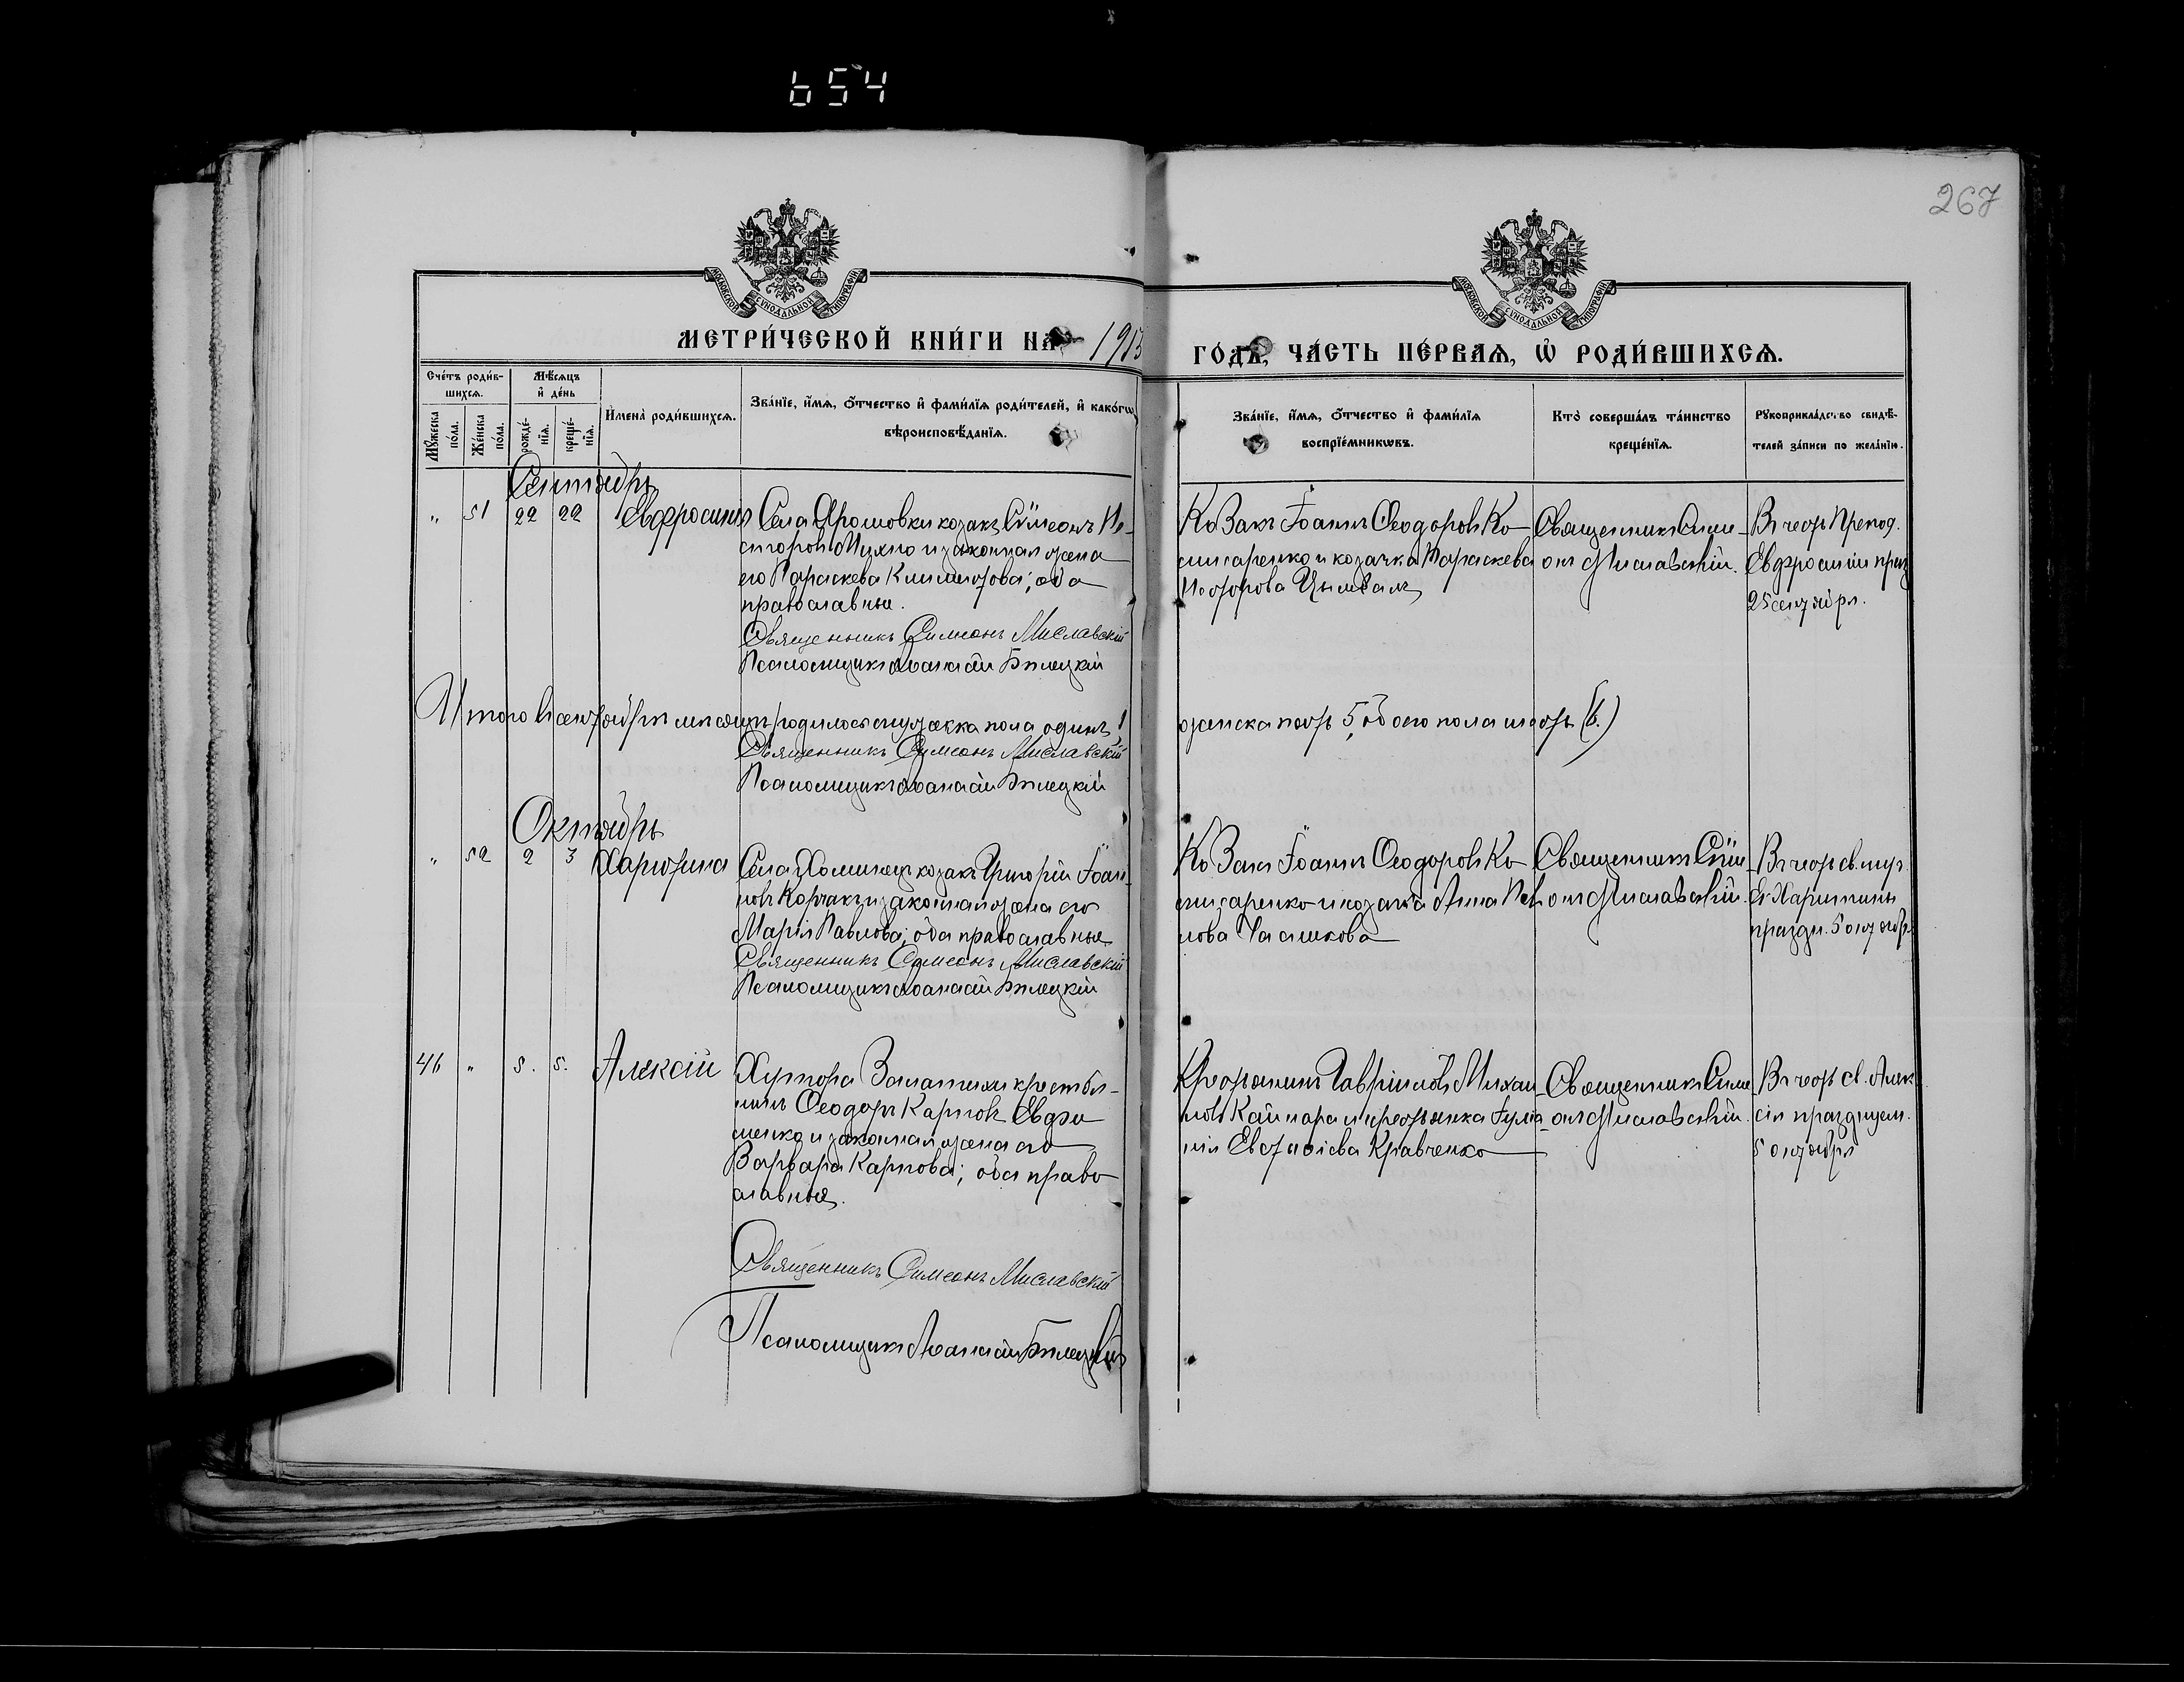 654
267
МОСКОВСКОЙ СѴНОДАЛЬНОЙ ТИПОГРАФІИ
МОСКОВСКОЙ СѴНОДАЛЬНОЙ ТИПОГРАФІИ
МЕТРИ́ЧЕСКОЙ КНИ́ГИ НА 1913
ГО́ДЪ, ЧА́СТЬ ПЕ́РВАѦ, Ѡ РОДИ́ВШИХСѦ.
Сче́тъ роди́в-
шихсѧ.
Мѣ́сѧцъ
и де́нь
Мꙋ́жеска по́ла.
Же́нска по́ла.
рожде́-нїѧ.
креще́-нїѧ.
Имена̀ роди́вшихсѧ.
Зва́нїе, и́мѧ, ѻ́тчество и фами́лїѧ роди́телей, и како́гѡ
вѣроисповѣ́данїѧ.
Зва́нїе, и́мѧ, ѻ́тчество и фами́лїѧ
воспрїе́мникѡвъ.
Кто̀ соверша́лъ та́инство
креще́нїѧ.
Рꙋкоприкла́дство свидѣ́-
телей за́писи по жела́нїю.
Сентябрь
" 51 22 22 Евфросинія
Села Ярошовки козакъ Сѵмеонъ Не-
сторовъ Михно и законная жена
его Параскева Климентова; оба
православные.
Священникъ Симеонъ Миславскій
Псаломщикъ Аѳанасій Бѣлецкій
Козакъ Іоаннъ Ѳеодоровъ Ко-
ссаренко и козачка Параскева
Несторова Цымбалъ
Священникъ Симе-
онъ Миславскій.
Въ честь Препод.
Евфросиніи празд
25 сентября.
Итого въ сентябрѣ мѣсяцѣ родилось мужеска пола одинъ 1
женска пять 5, обоего пола шесть (6.)
Священникъ Симеонъ Миславскій
Псаломщикъ Аѳанасій Бѣлецкій
Октябрь
" 52 2 3 Харитина
Села Хоминецъ козакъ Григорій Іоан-
новъ Корчакъ и законная жена его
Марія Павлова; оба православные
Священникъ Симеонъ Миславскій
Псаломщикъ Аѳанасій Бѣлецкій
Козакъ Іоаннъ Ѳеодоровъ Ко-
и козачка Анна
Священникъ Сѵме-
онъ Миславскій.
Въ честь св. муч.
Харитины
праздн. 5 октябр.
46 " 5. 5. Алексій
Хутора крестья-
нинъ Ѳеодоръ Карповъ Евфи
менко и законная жена его
Варвара Карпова; оба право
славные.
Священникъ Симеонъ Миславскій
Псаломщикъ Аѳанасій Бѣлецкій
Крестьянинъ Гавріилъ Михаи
ловъ и крестьянка Іулiа
нія Евстафіева Кравченко
Священникъ Симе
онъ Миславскій.
Въ честь св. Алек
сія празднуем.
5 октября